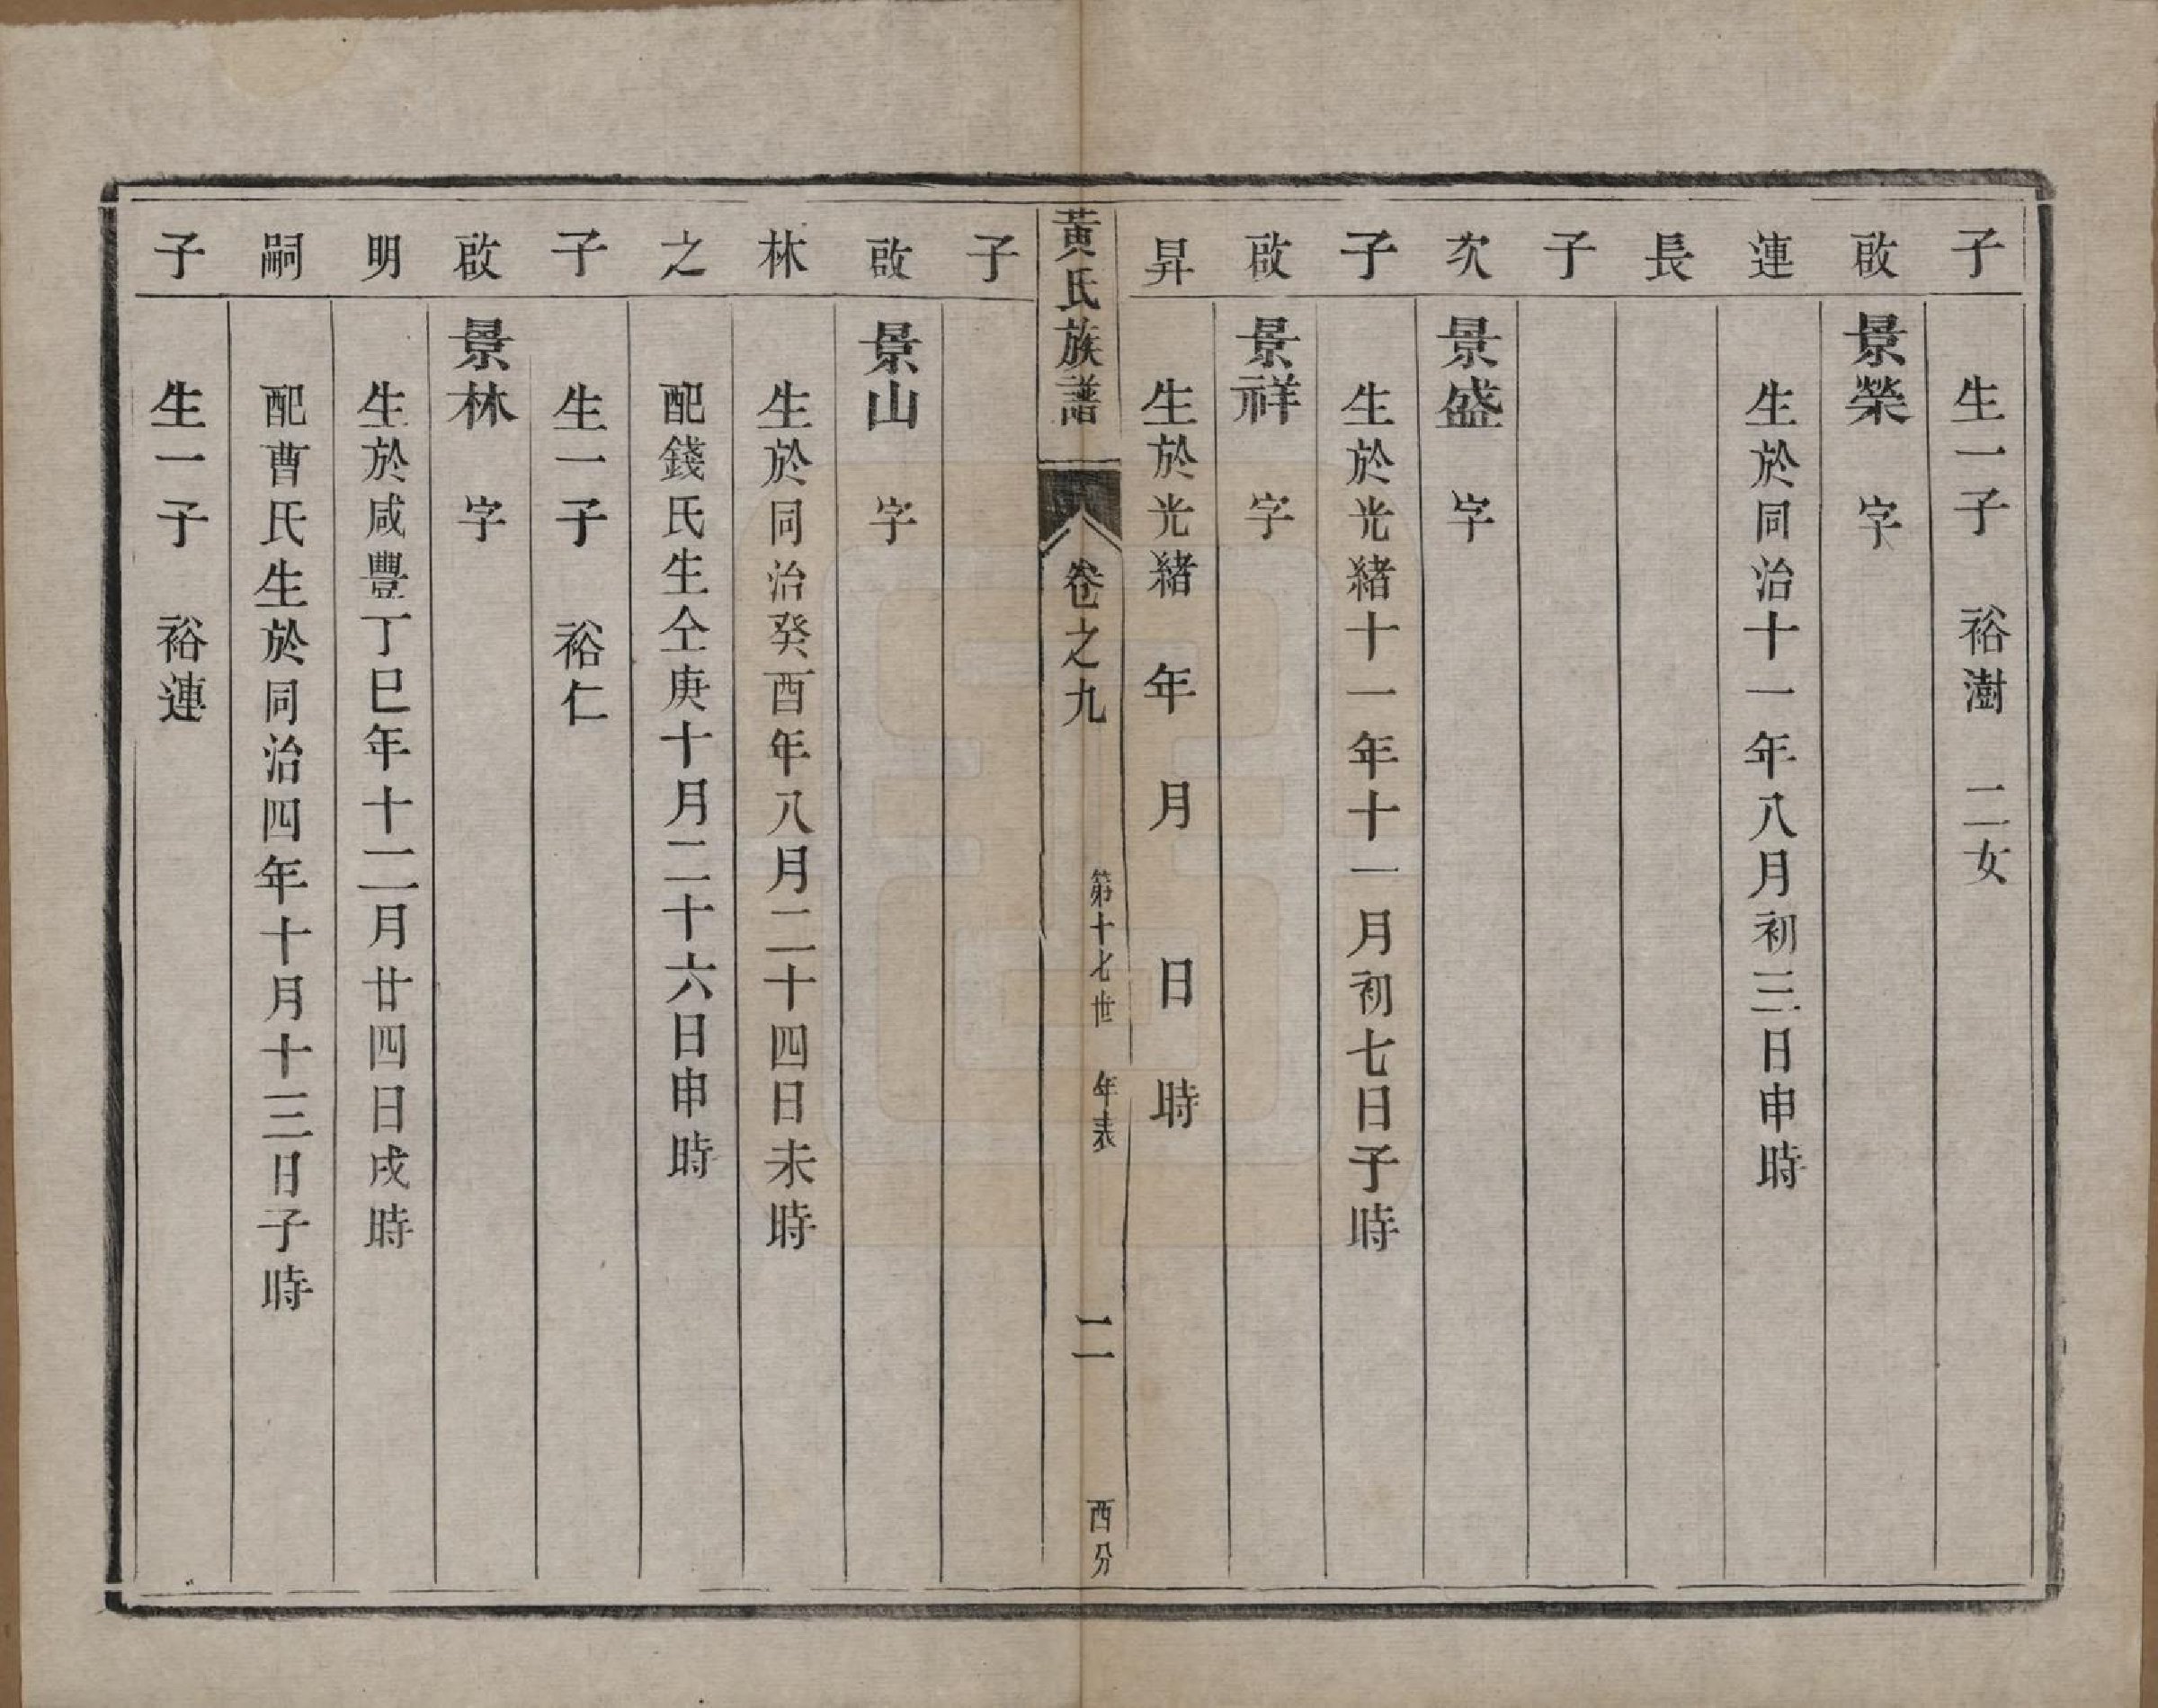 子　生一子　裕澍　二女
啟　景榮　字
連　生於同治十一年八月初三日申時
長
子
次　景盛　字
子　生於光緒十一年十一月初七日子時
啟　景祥　字
昇　生於光緒　年　月　日　時
黃氏族譜　卷之九　第十七世　年表　二　西分
子
啟　景山　字
林　生於同治癸酉年八月二十四日未時
之　配錢氏生仝庚十月二十六日申時
子　生一子　裕仁
啟　景林　字
明　生於咸豐丁巳年十二月廿四日戌時
嗣　配曹氏生於同治四年十月十三日子時
子　生一子　裕連